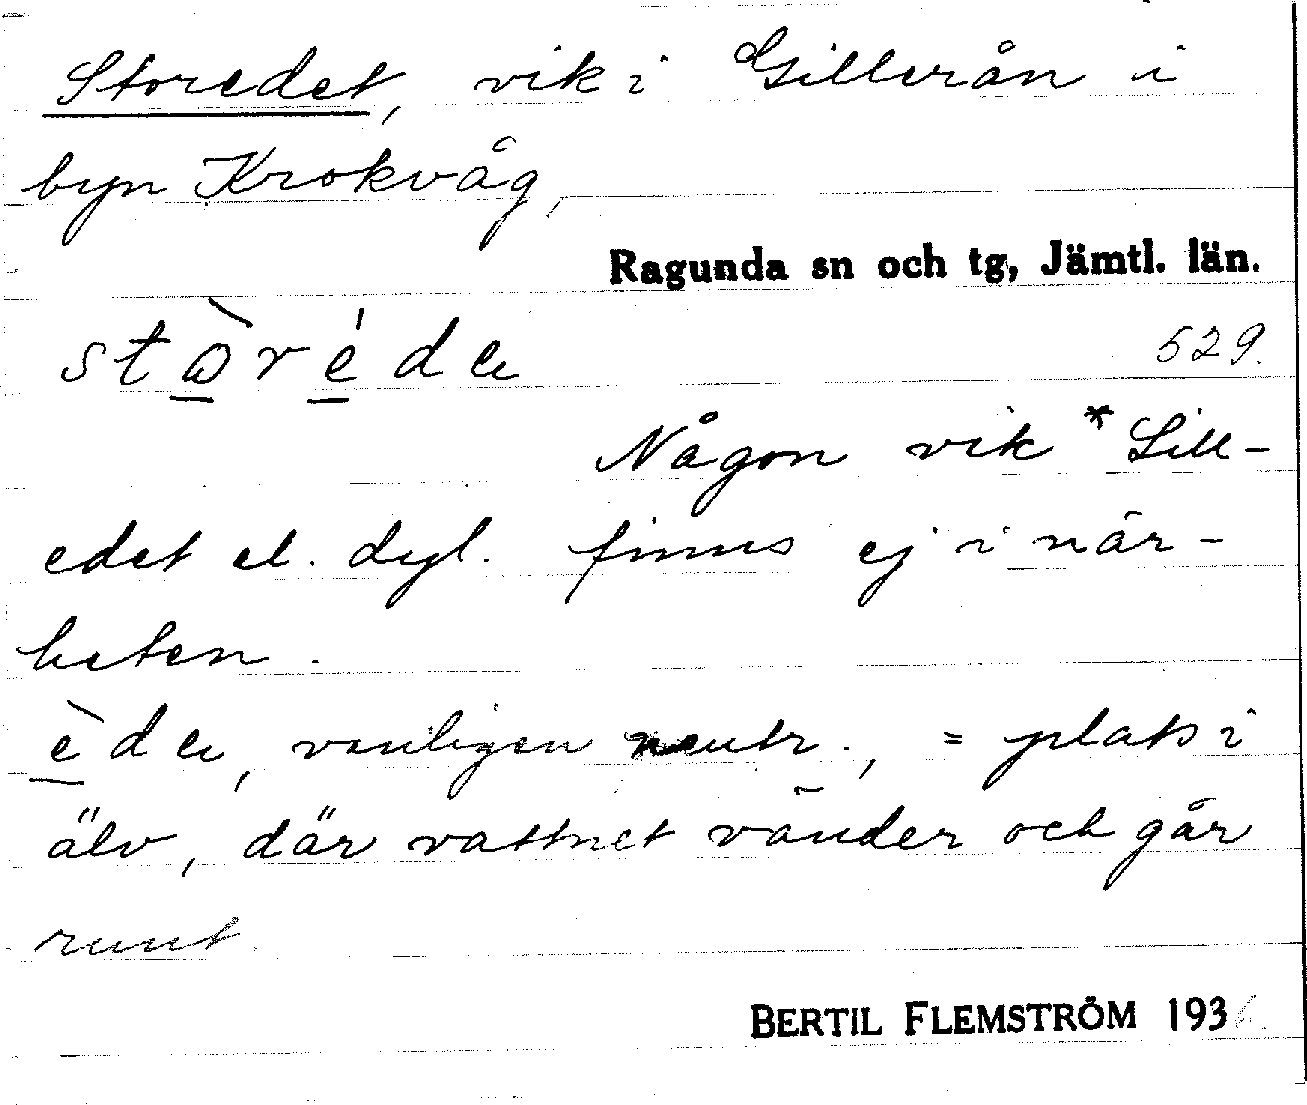 Storedet, vik i Gillerån i
byn Krokvåg,
Ragunda sn och tg, Jämtl. län.
stòr éde
529.
Någon vik *Lill-
edet el. dyl. finns ej i när-
heten.
ède, vanligen neutr., = plats i
älv, där vattnet vänder och går
runt.
BERTIL FLEMSTRÖM 1936.